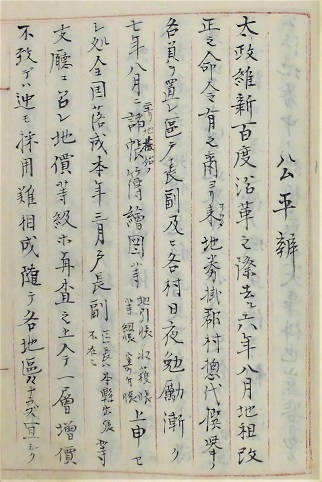 公平辨
太政維新百度沿革之際去ル六年八月地租改
正之命令有之爾ヨリ来地券掛郡村惣代撰挙シ
各員ヲ置レ區戸長副及ヒ各村日夜勉勵漸ク
七年八月ニ諸帳簿繪図等地引帳収穫帳等上申セ
シ処全国落成本年三月戸長副等
支廳ニ召シ地價等級ホ再査之上今一層増價
不致デハ迚モ採用難相成随テ各地區々